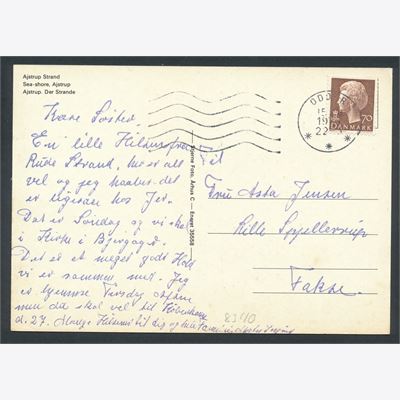 Ajstrup Strand
Sea-shore, Ajstrup
Ajstrup. Der Strande
Kære Søster.
En lille Hilsen fra
Rude Strand, her er alt
vel og jeg haaber det
er ligesaa hos Jer.
Det er Søndag og vi skal
i Kirke i
Det er et meget godt Hold
vi er sammen med. Jeg
er hjemme Torsdag Aften
men da skal vel til København
d. 27. Mange Hilsner til dig og
Bjerne Foto, Århus C — Eneret 35558
Til
Fru Asta Jensen
Lille
Fakse.
ODDER
15
19
22
70
DANMARK
8340